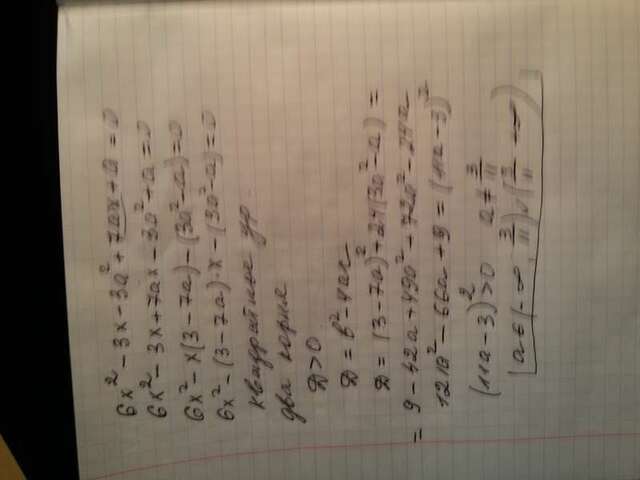 6x² - 3x - 3a² + 7ax + a = 0
6x² - 3x + 7ax - 3a² + a = 0
6x² - x(3 - 7a) - (3a² - a) = 0
6x² - (3 - 7a)·x - (3a² - a) = 0
квадратные ур.
два корня
D > 0
D = b² - 4ac
D = (3 - 7a)² + 24(3a² - a) =
= 9 - 42a + 49a² + 72a² - 24a
121a² - 66a + 9 = (11a - 3)²
(11a - 3)² > 0 a ≠ 3/11
a ∈ (-∞, 3/11) ∪ (3/11 ∞)